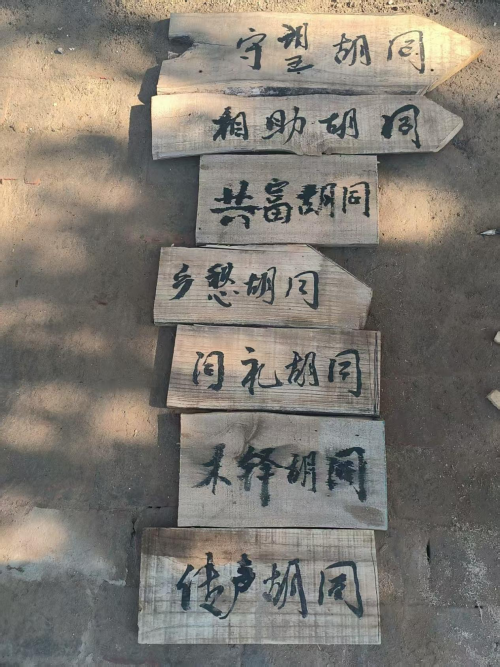 守望胡同
相助胡同
共富胡同
乡愁胡同
问礼胡同
木铎胡同
传声胡同